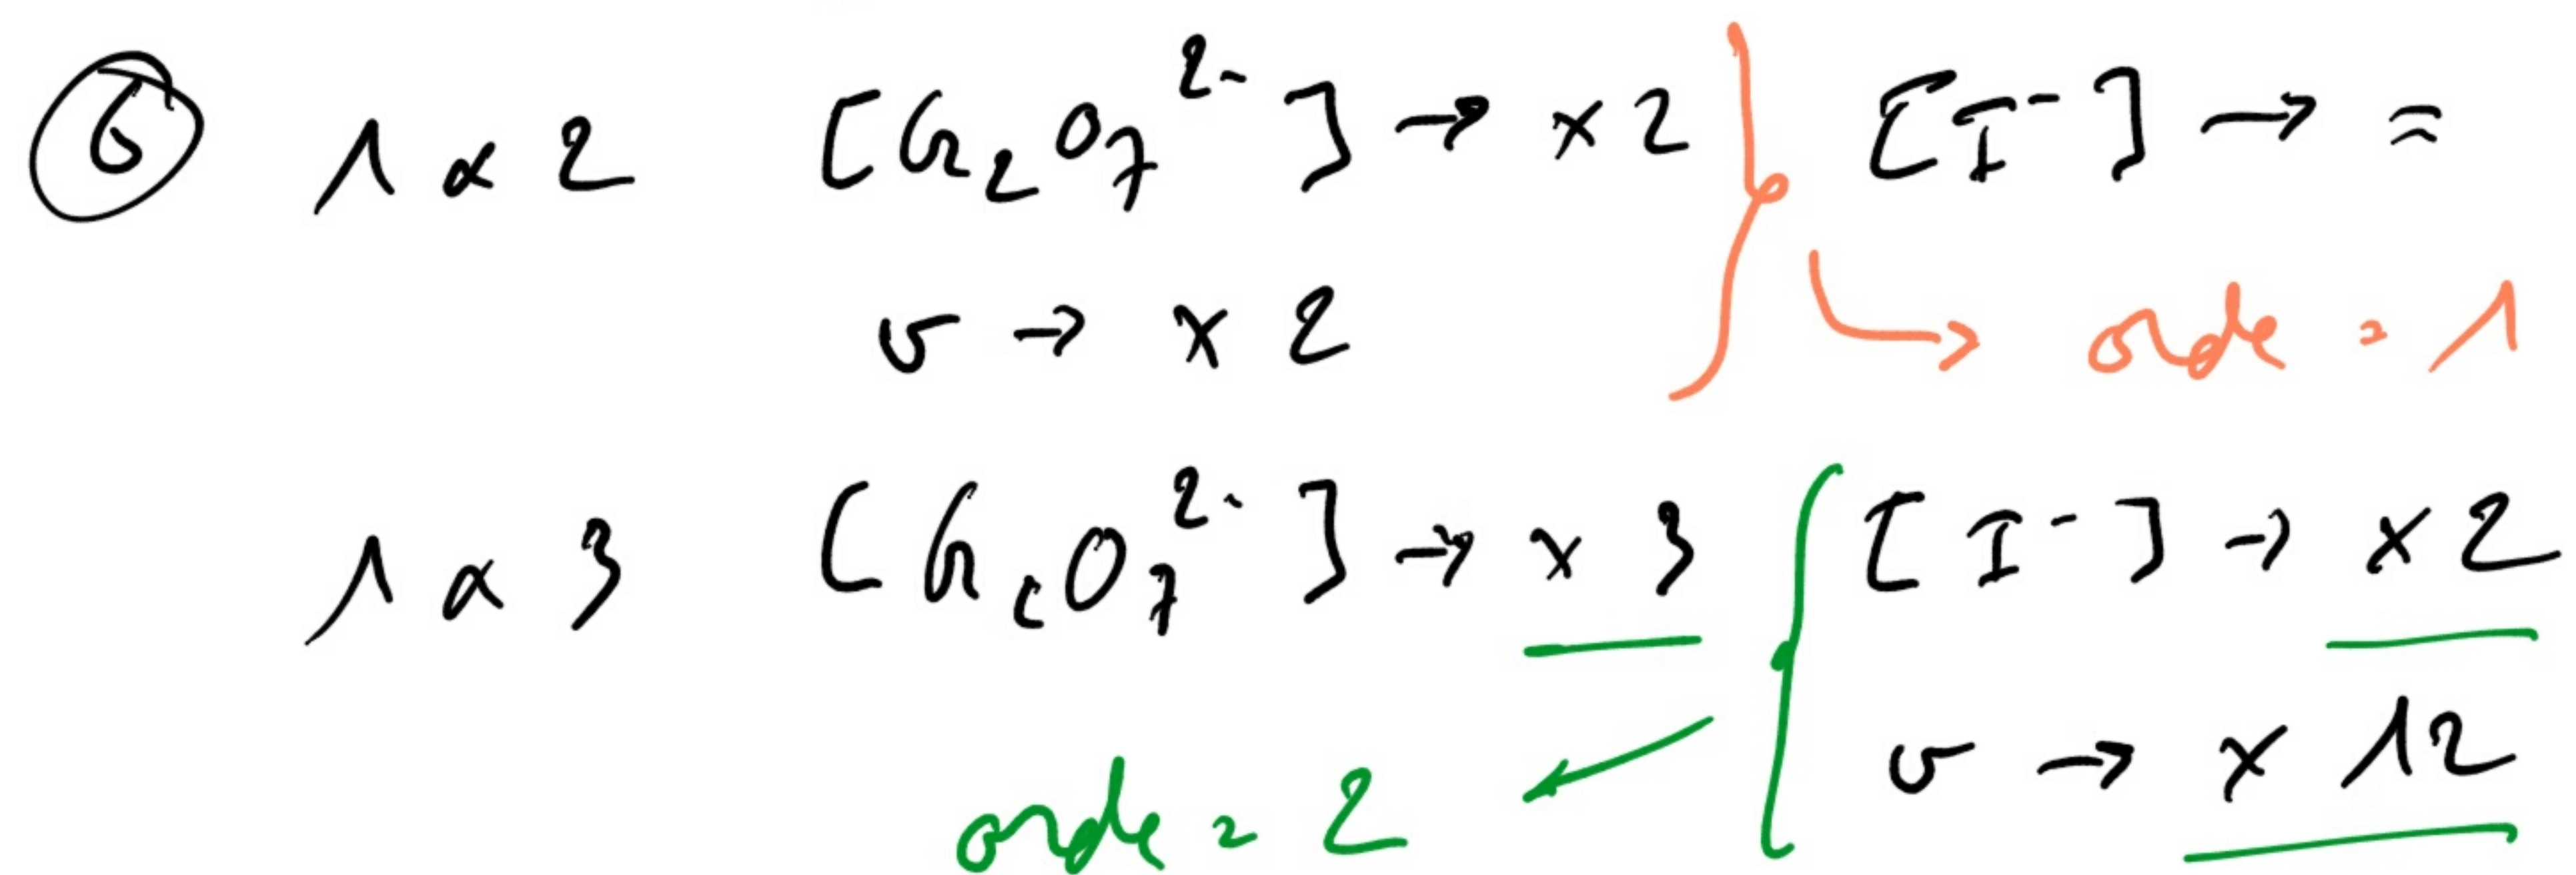 ⑥ 1 & 2 [Cr₂O₇²⁻] → × 2 [I⁻] → =
v → × 2 ↳ ordre = 1
1 & 3 [Cr₂O₇²⁻] → × 3 [I⁻] → × 2
v → × 12
ordre = 2